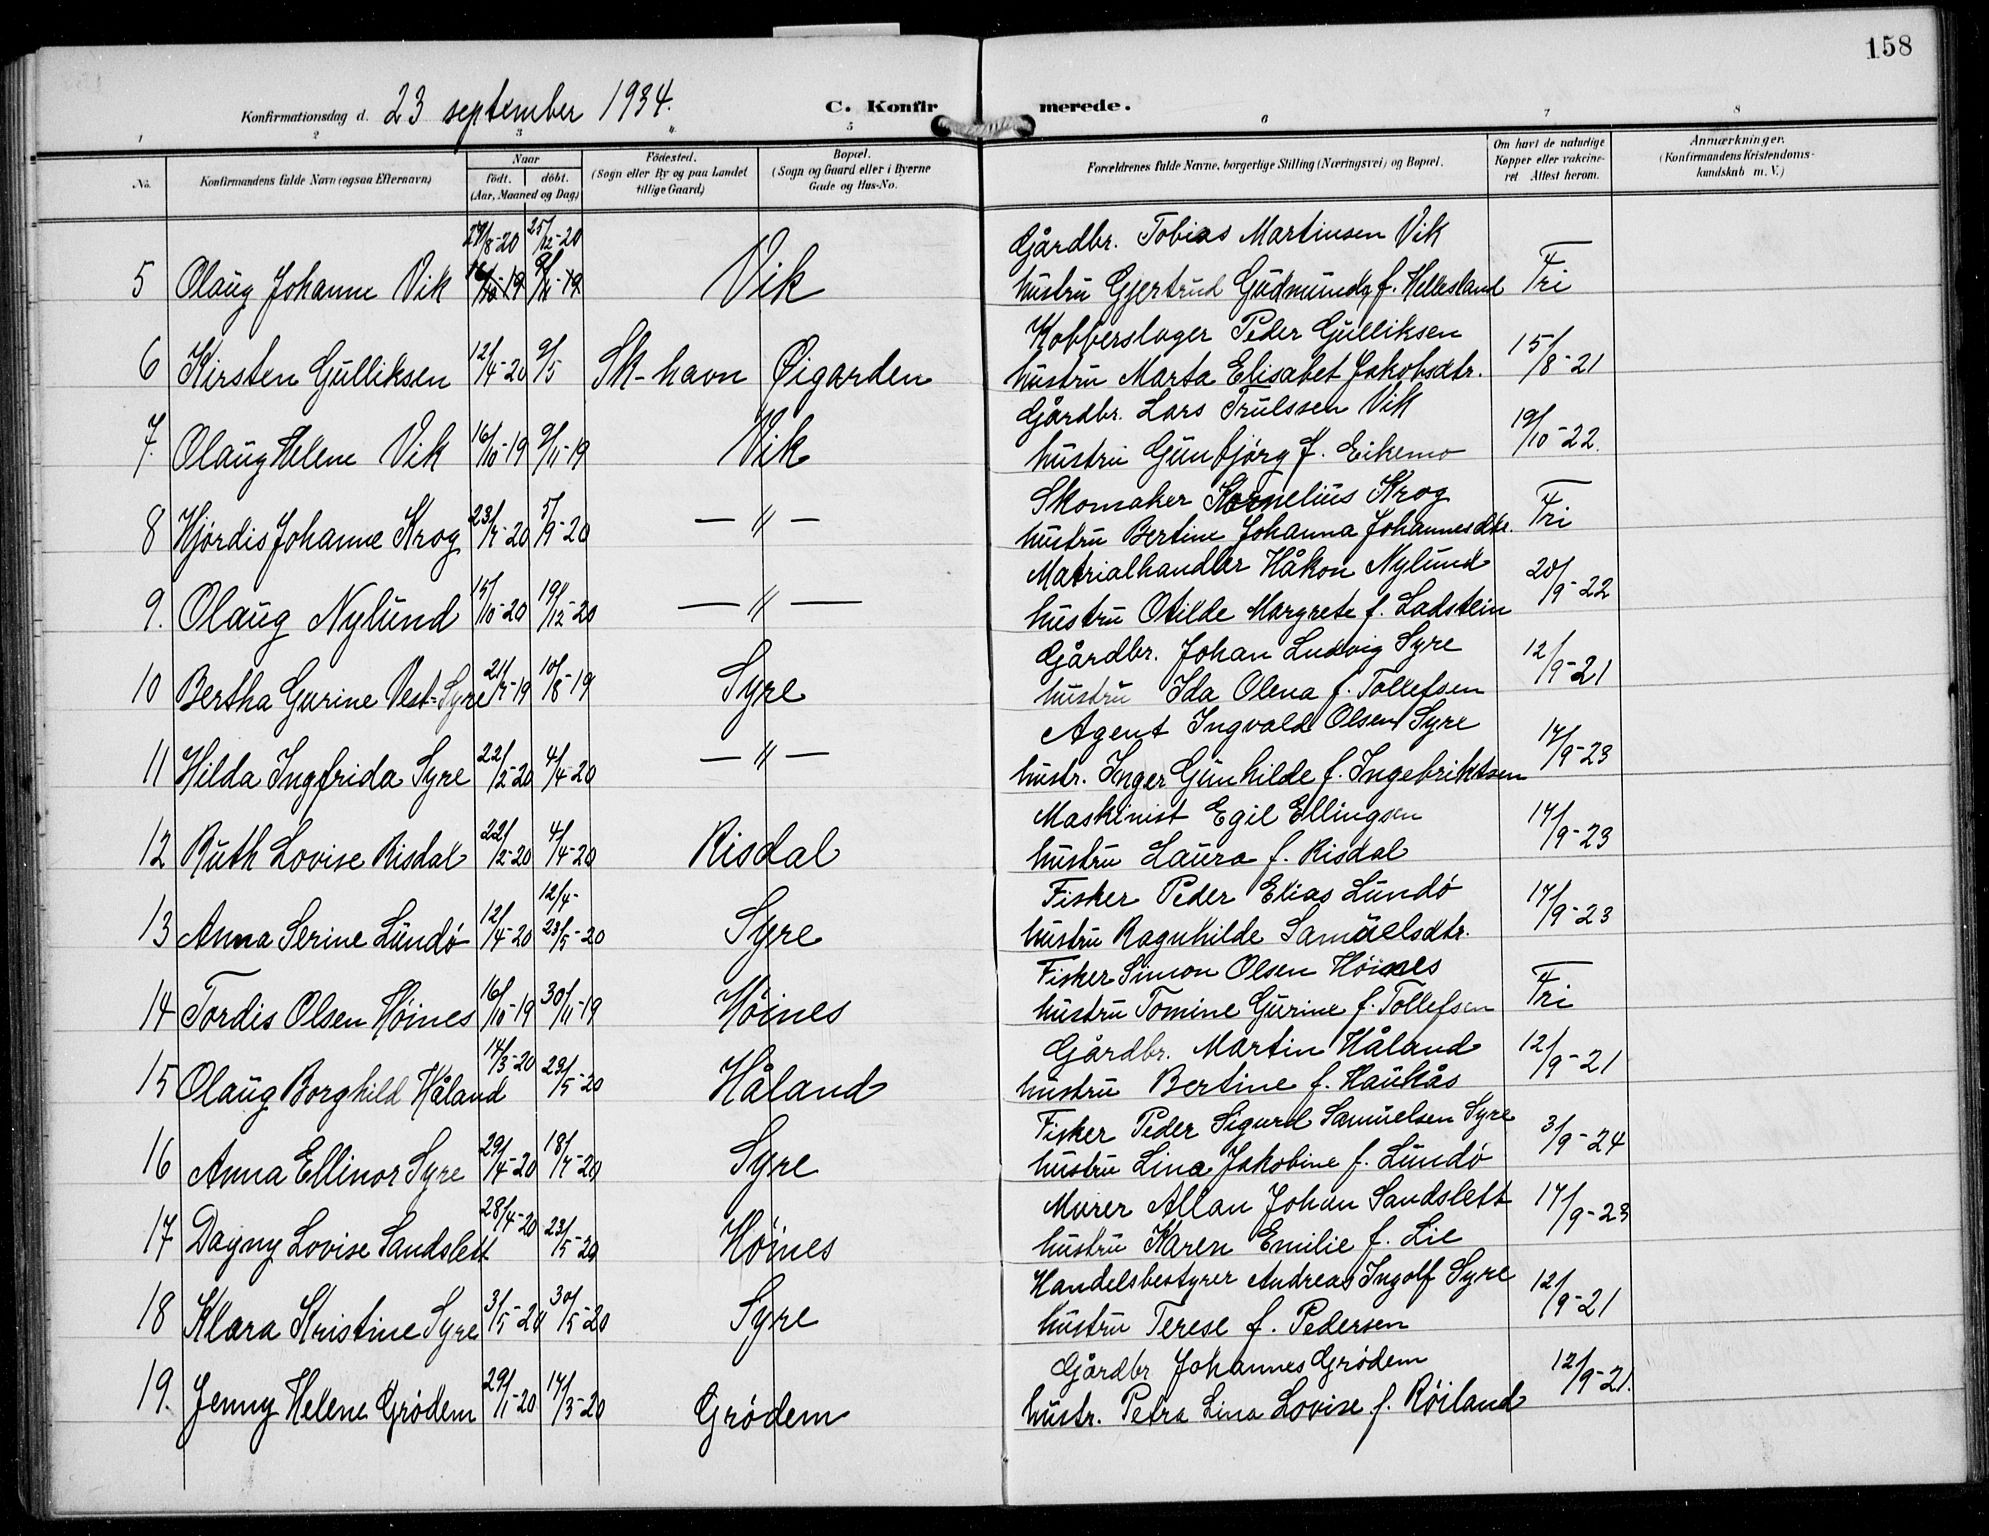 158
Konfirmationsdag d. 23 september 1934.
C. Konfirmerede.
1 2 3 4 5 6 7 8
No. Konfirmandens fulde Navn (ogsaa Efternavn) Naar født. døbt. (Aar, Maaned og Dag) Fødested. (Sogn eller By og paa Landet tillige Gaard) Bopæl. (Sogn og Gaard eller i Byerne Gade og Hus-No. Forældrenes fulde Navne, borgerlige Stilling (Næringsvei) og Bopæl. Om havt de naturlige Kopper eller vakcineret Attest herom. Anmærkninger. (Konfirmandens Kristendomskundskab m. V.)
27/8-20 25/12-20 Gårdbr. Tobias Martinsen Vik
5 Olaug Johanne Vik 16/10-19 9/11-19 Vik hustru Gjertrud Gudmundy f. Hellesland Fri
Kobberslager Peder Gulliksen
6 Kirsten Gulliksen 12/4-20 9/5 Sk-havn Øigarden hustru Marta Elisabet Jakobsdtr. 15/8-21
Gårdbr. Lars Trulssen Vik
7. Olaug Helene Vik 16/10-19 9/11-19 Vik hustru Gunbjørg f. Eikemo 19/10-22.
Skomaker Kornelius Krog
8 Hjørdis Johanne Krog 23/7-20 5/9-20 — " — hustru Bertine Johanna Johannesdtr. Fri
Matrialhandler Håkon Nylund
9. Olaug Nylund 15/10-20 19/12-20 — " — hustru Otilde Margrete f. Ladstein 20/9-22
Gårdbr. Johan Ludvig Syre
10 Bertha Gurine Vest-Syre 21/7-19 10/8-19 Syre hustru Ida Olena f. Tollefsen 12/9-21
Agent Ingvald Olsen Syre
11 Hilda Ingfrida Syre 22/2-20 4/4-20 — " — hustr. Inger Gunhilde f. Ingebriktsen 17/9-23
Maskinist Egil Ellingsen
12 Ruth Lovise Risdal 22/2-20 4/4-20 Risdal hustru Laura f. Risdal 17/9-23
12/4- Fisker Peder Elias Lundø
13 Anna Serine Lundø 12/4-20 23/5-20 Syre hustru Ragnhilde Samuelsdtr. 17/9-23
Fisker Simon Olsen Høines
14 Tordis Olsen Høines 16/10-19 30/11-19 Høines hustru Tomine Gurine f. Tollefsen Fri
Gårdbr. Martin Håland
15 Olaug Borghild Håland 14/3-20 23/5-20 Håland hustru Bertine f. Haukås 12/9-21
Fisker Peder Sigurd Samuelsen Syre
16 Anna Ellinor Syre 29/4-20 18/7-20 Syre hustru Lina Jakobine f. Lundø 3/9-24
Murer Allan Johan Sandslett
17 Dagny Lovise Sandslett 28/4-20 23/5-20 Høines hustru Karen Emilie f. Lie 17/9-23
Handelsbestyrer Andreas Ingolf Syre
18 Klara Kristine Syre 3/5-20 30/5-20 Syre hustru Terese f. Pedersen 12/9-21
Gårdbr Johannes Grødem
19. Jenny Helene Grødem 29/1-20 14/3-20 Grødem hustr. Petra Lina Lovise f. Røiland 12/9-21.